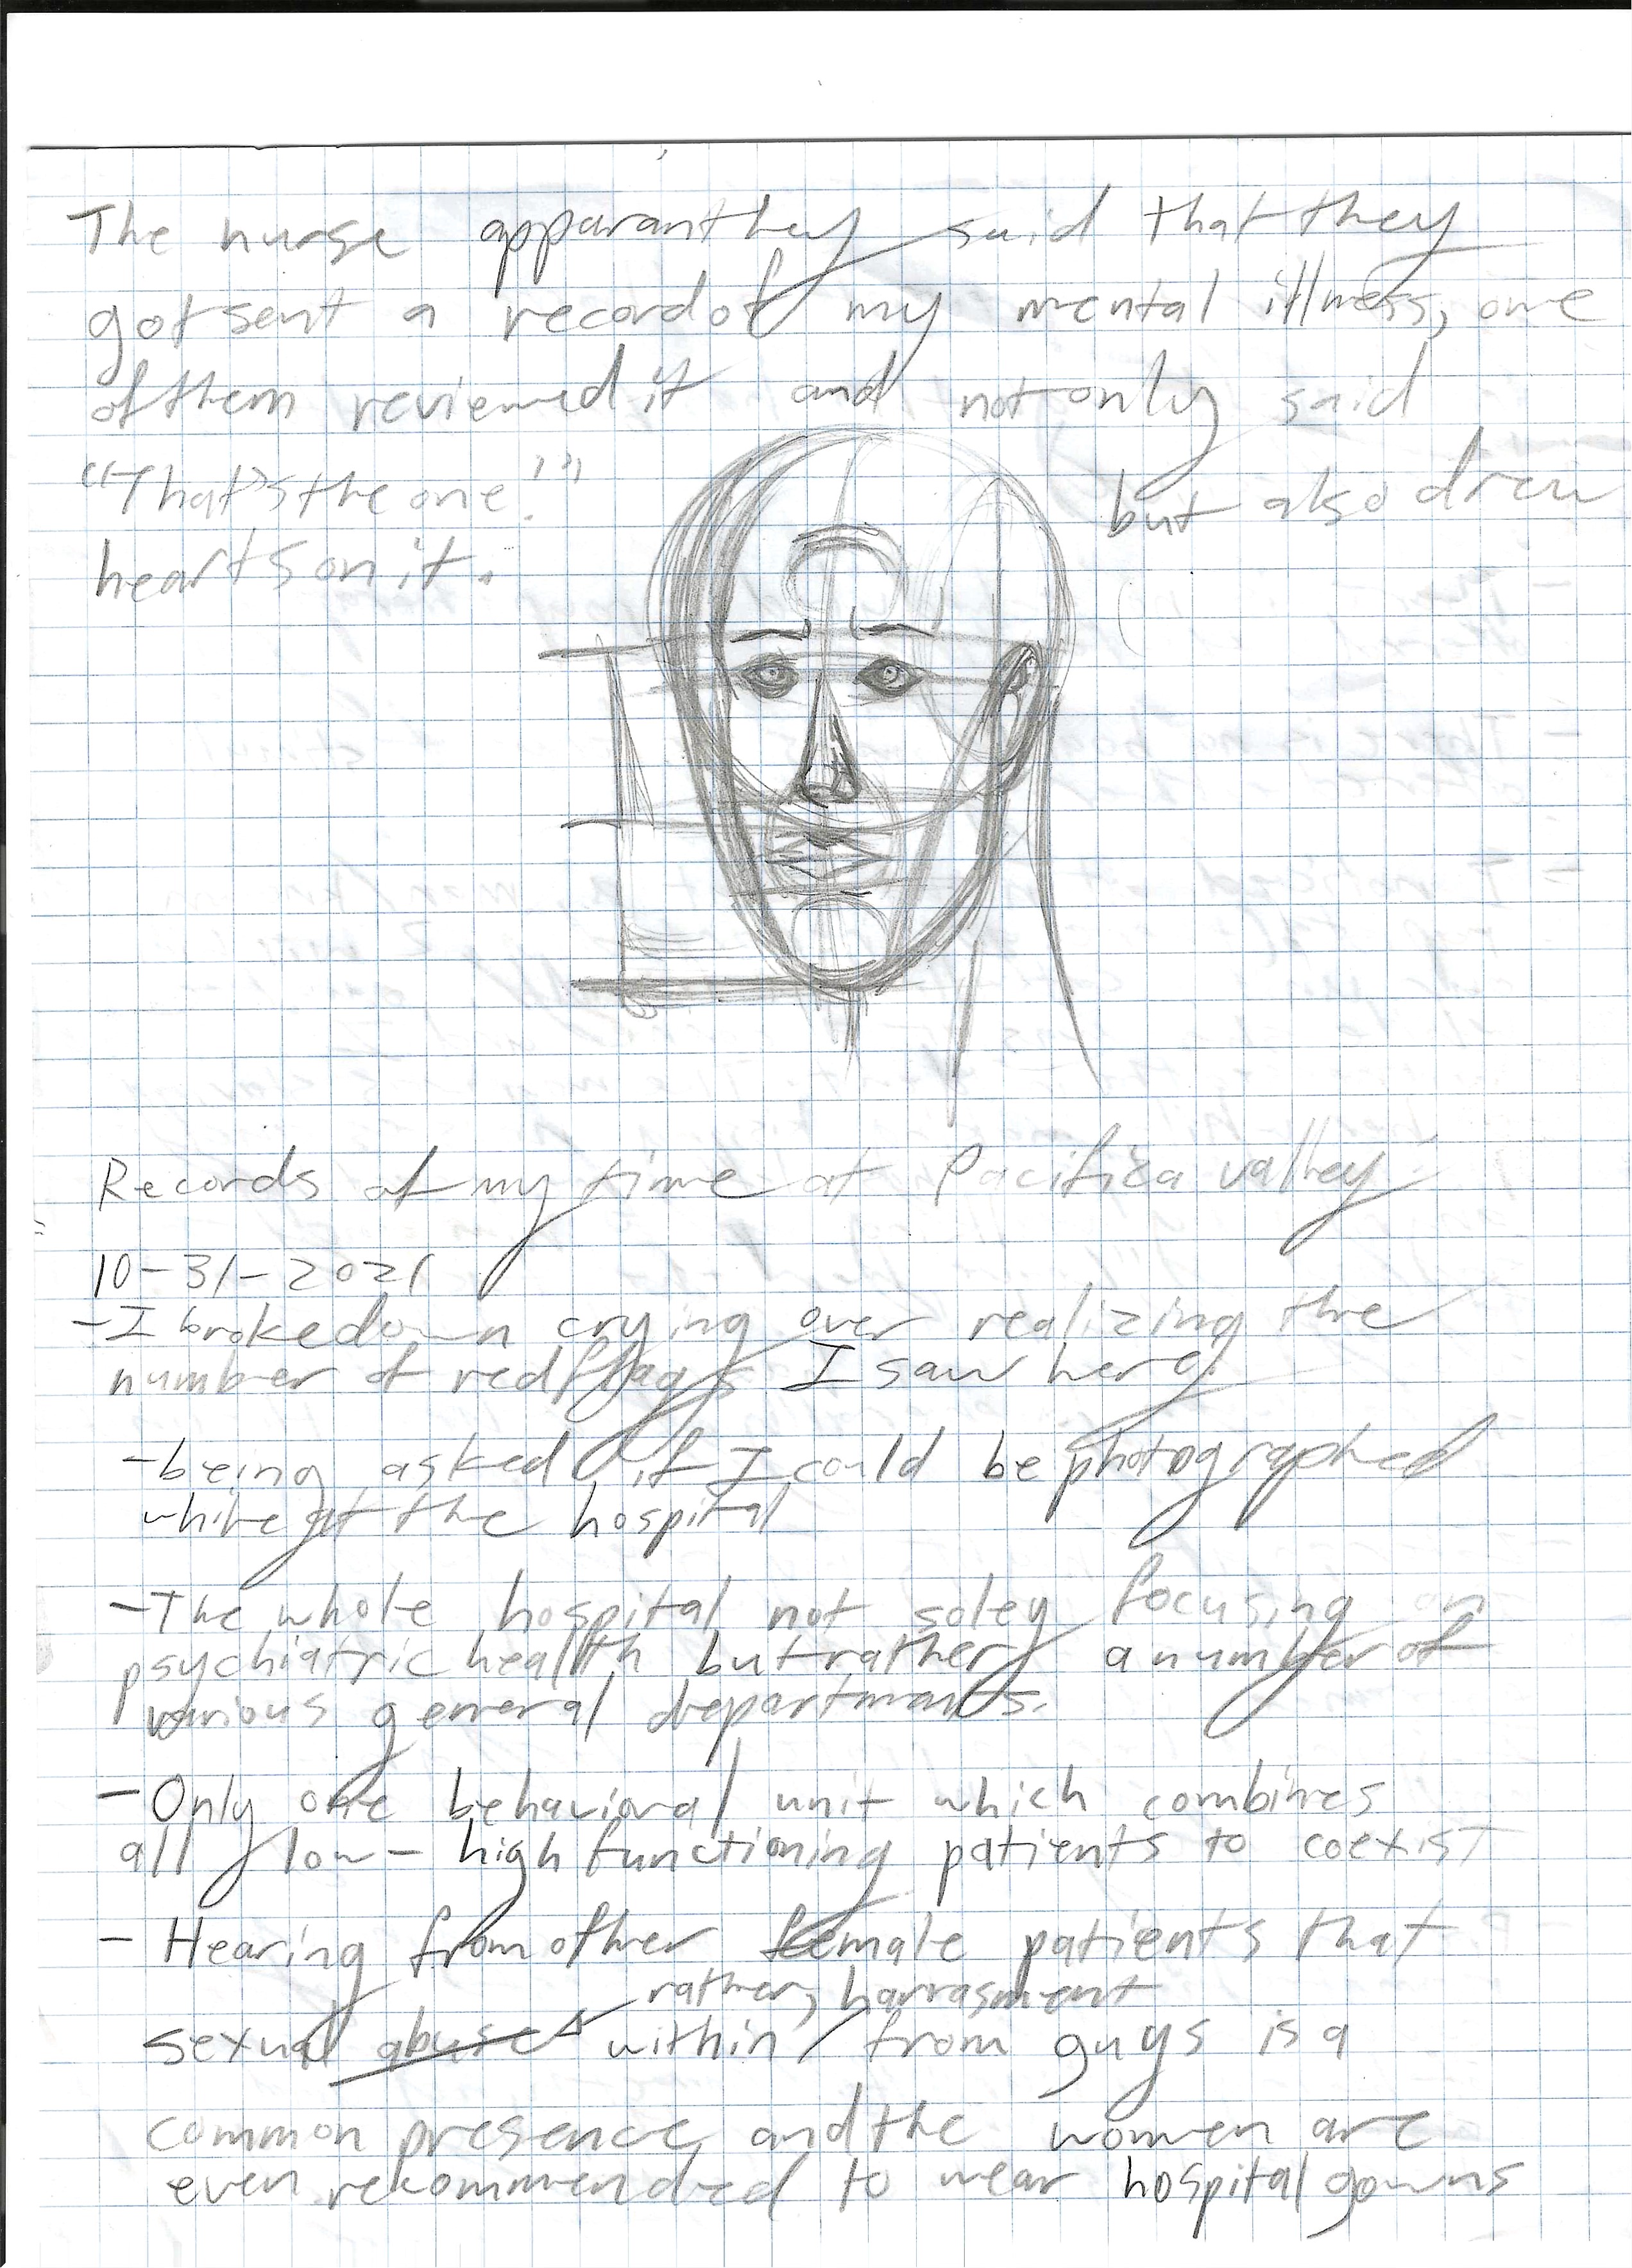 The nurse apparantley said that they
got sent a record of my mental illness, one
of them reviewed it and not only said
"That's the one!" but also drew
hearts on it.
Records of my time at Pacifica valley
10-31-2021
- I broke down crying over realizing the
number of red flags I saw here.
- being asked if I could be photographed
while at the hospital
- The whole hospital not soley focusing on
psychiatric health but rather a number of
various general departments.
- Only one behavioral unit which combines
all low-high functioning patients to coexist
- Hearing from other female patients that
rather, harrasment
sexual abuse within / from guys is a
common presence and the women are
even rekommended to wear hospital gowns